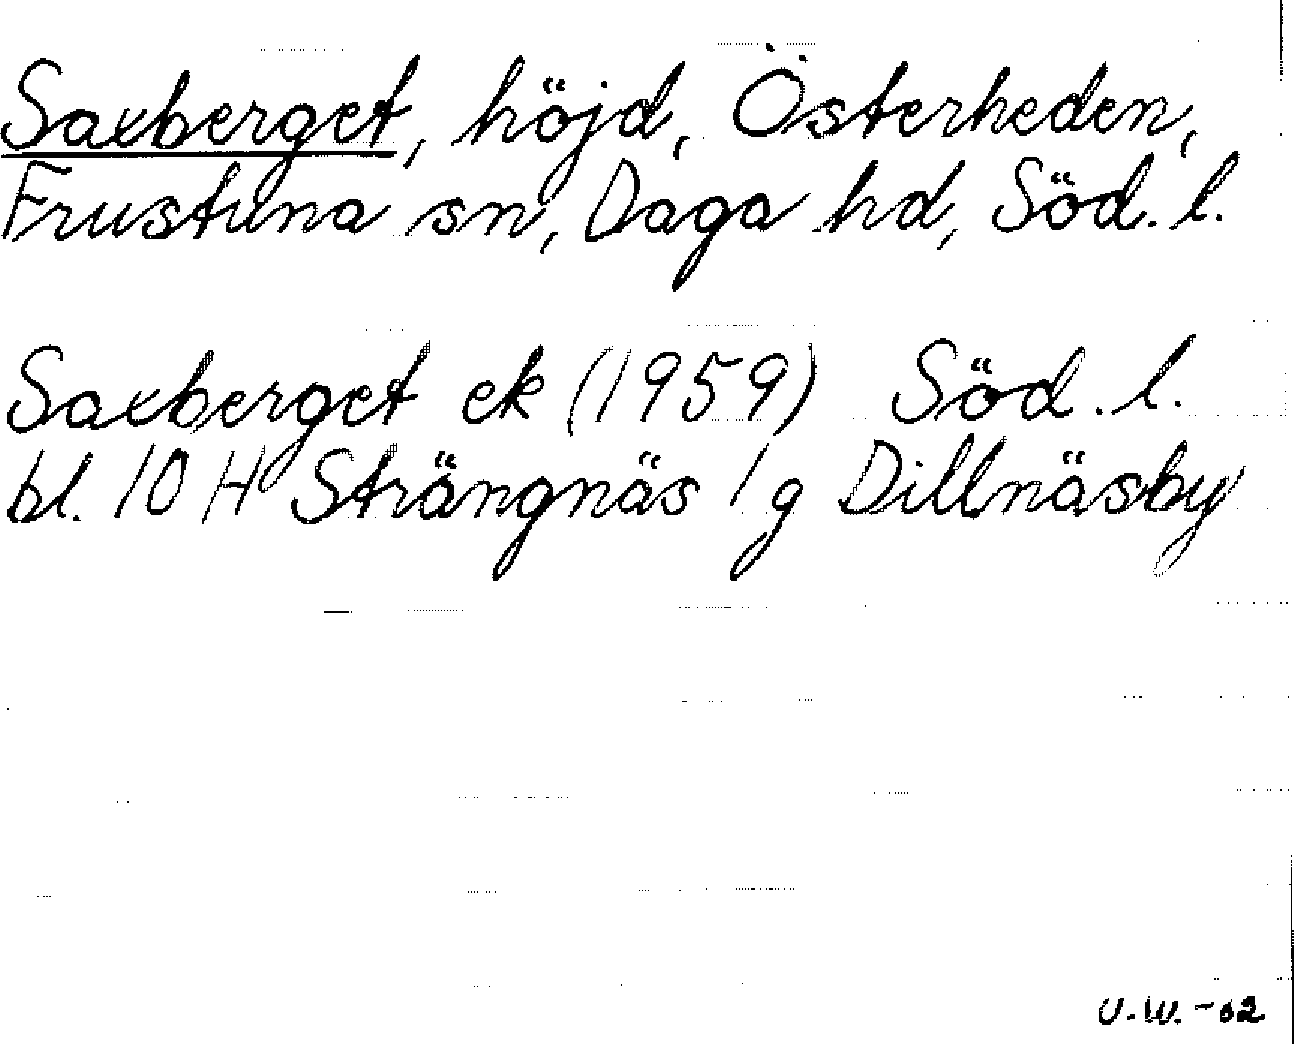 Saxberget, höjd, Österheden,
Frustuna sn, Daga hd, Söd. l.
Saxberget ek (1959) Söd. l.
bl. 10 H Strängnäs 1 g Dillnäsby
U.W. -62